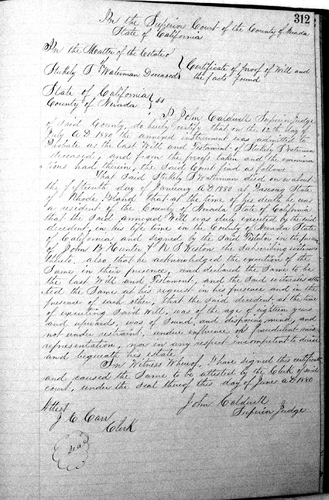 312
In the Superior Court of the County of Nevada
State of California
In the Matter of the Estate
of
Stukely S Waterman Deceased
Certificate of Proof of Will and
the facts found
State of California
County of Nevada } ss
I John Caldwell Superior Judge
of said County, do hereby certify that on the 12th day of
July A.D. 1880 the annexed instrument was admitted to
Probate as the last Will and Testament of Stukely S Waterman
deceased, and from the proofs taken and the examina
tions had therein, the said Court find as follows
That Said Stukely S Waterman died on or about
the fifteenth day of January A.D. 1880 at
Rhode Island that at the time of his death he was
a resident of the County of Nevada State of California
that the said annexed Will was duly executed by the said
decedent, in his life time in the County of Nevada State
of California and signed by the said Testator in the pres
of John B Hunter & the subscribing witnesses
thereto, also that he acknowledged the execution of the
Same in their presence, and declared the Same to be
his last Will and Testament, and the Said witnesses attes
ted the Same at his request in his presence and in the
presence of each other, that the said decedent at the time
of executing Said Will, was of the age of eighteen years
and upwards, was of Sound, and disposing mind, and
not under restraint, undue influence or fraudulent mis
representation, nor in any respect incompetent to devise
and bequeath his estate
In Witness Whereof, I have signed this certificate
and caused the Same to be attested by the Clerk of said
court, under the Seal thereof this day of June A.D. 1880
John Caldwell
Superior Judge
Attest
J. E. Carr
Clerk
Seal